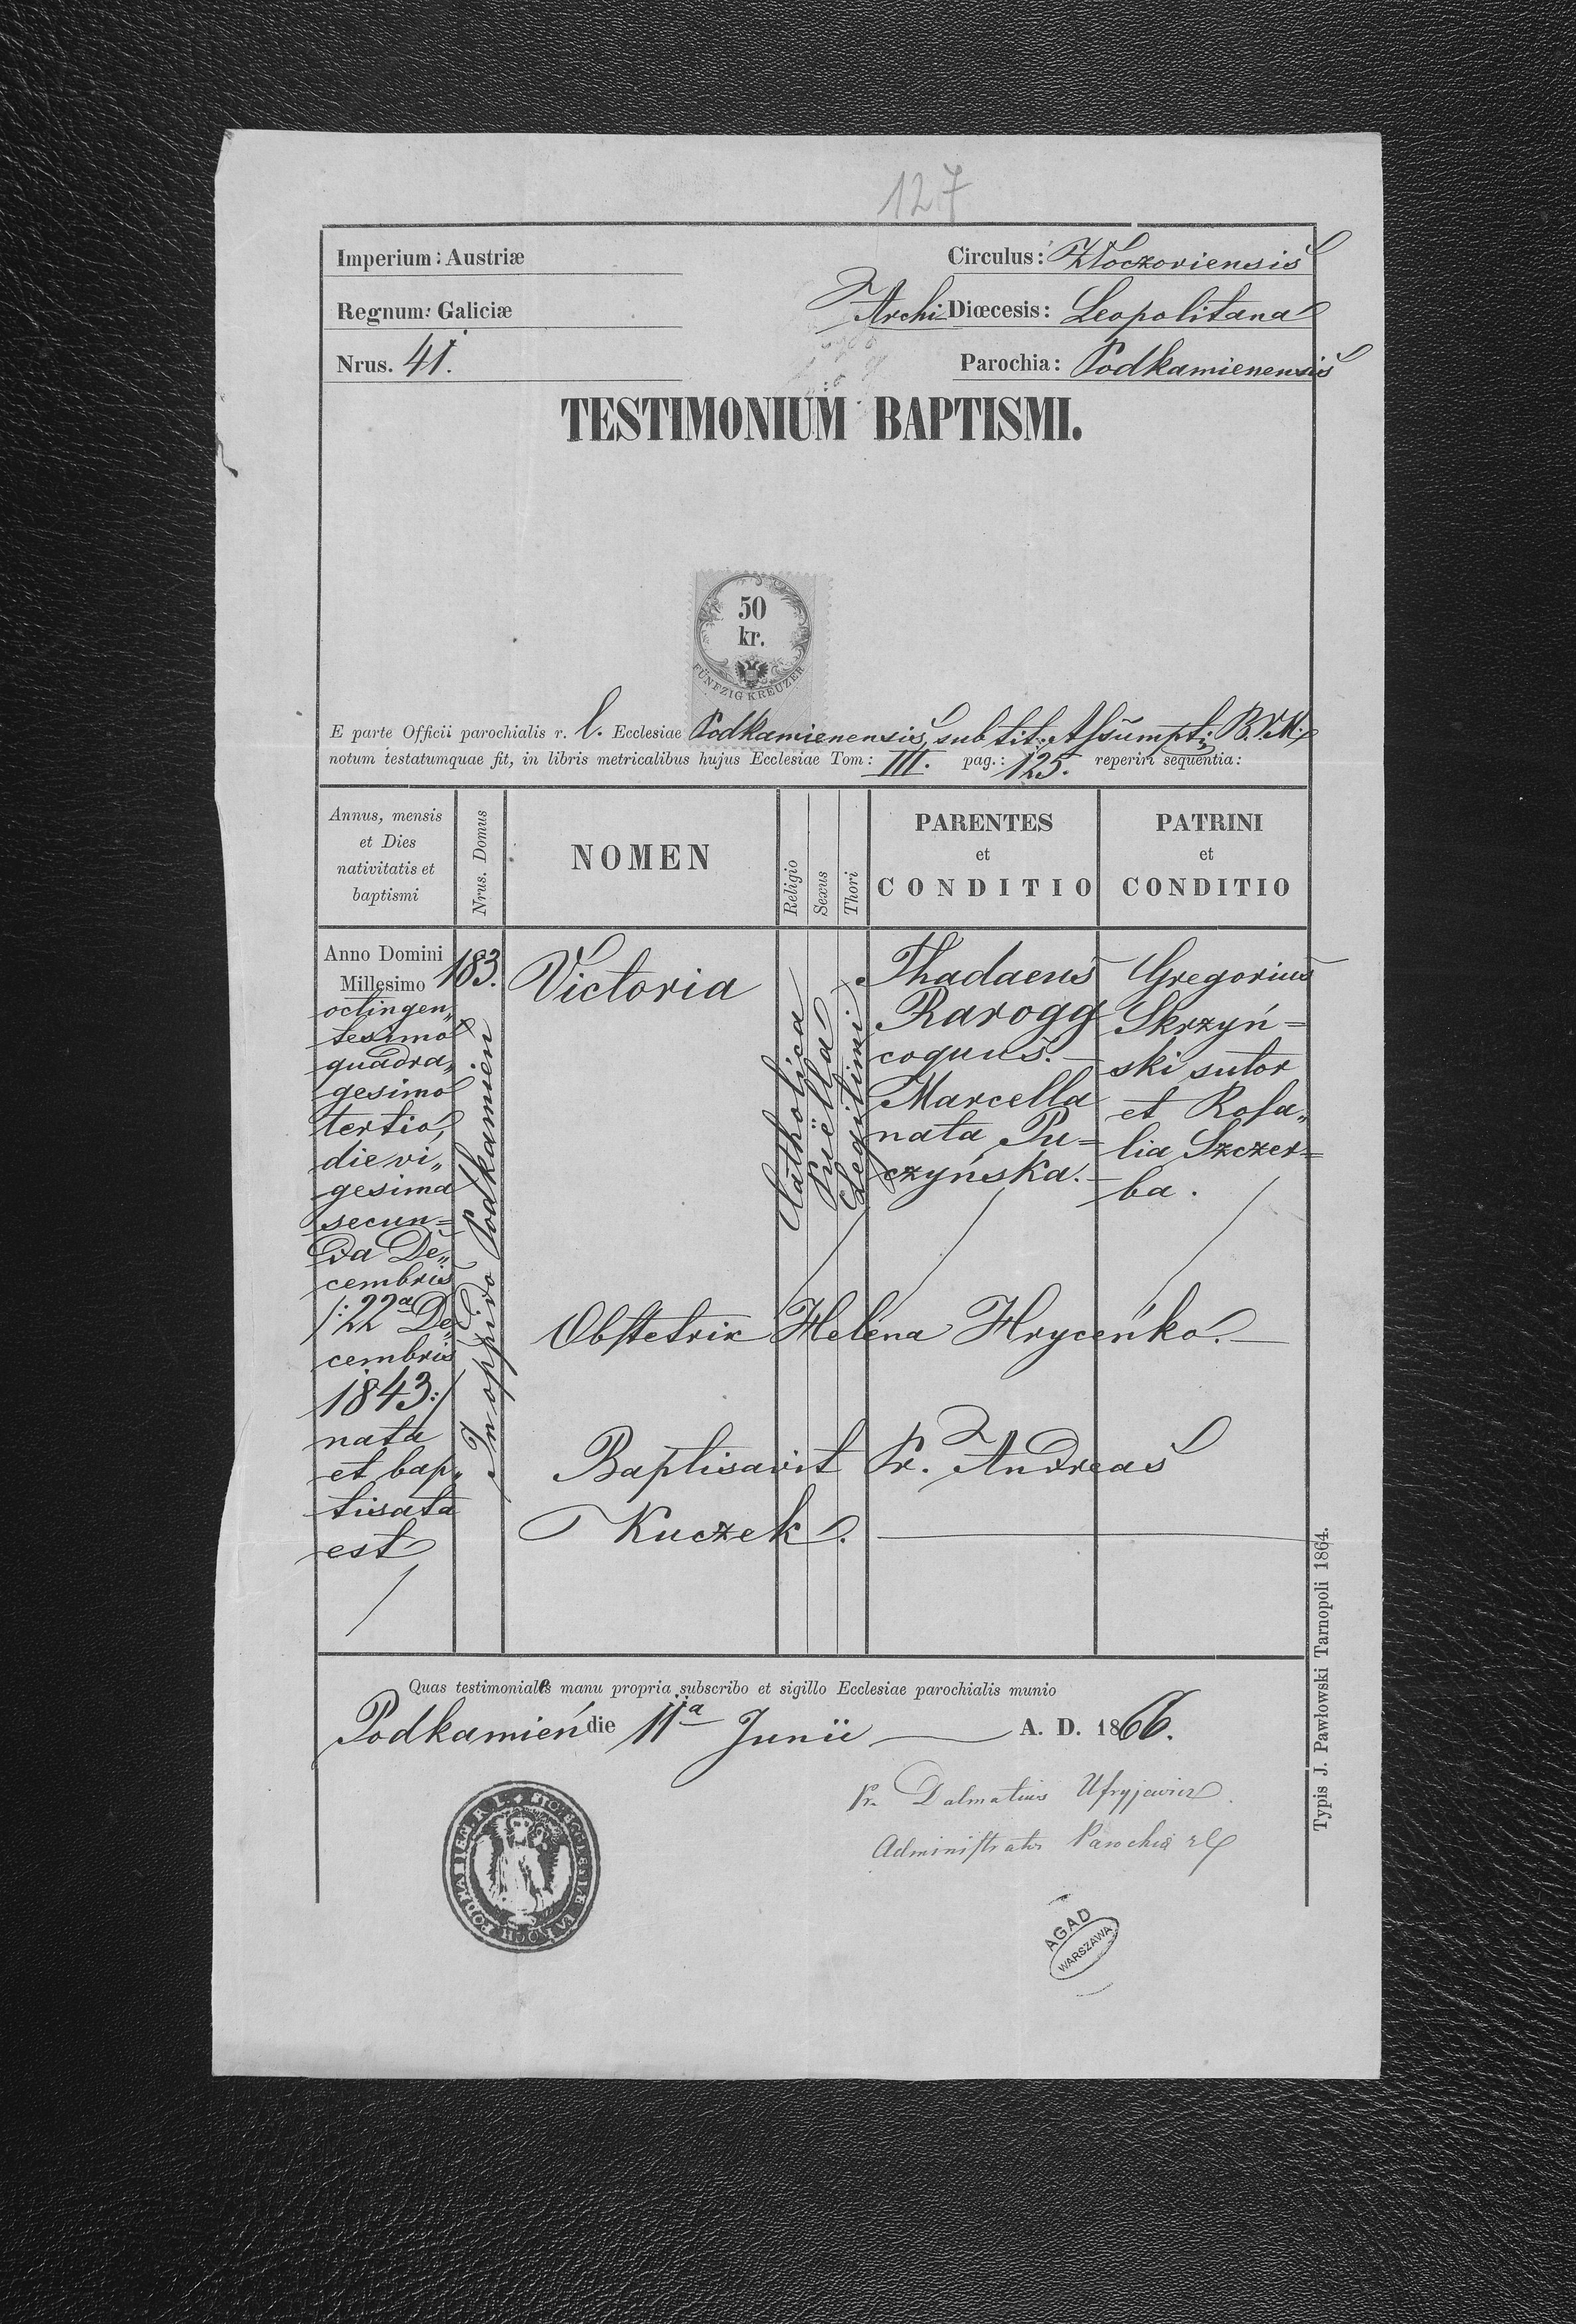 127
Imperium: Austriæ
Circulus: Złoczoviensis
Regnum: Galiciæ
Archi Diœcesis: Leopolitana
Nrus. 41.
Parochia: Podkamienensis
TESTIMONIUM BAPTISMI.
50
kr.
FÜNFZIG KREUZER
E parte Officii parochialis r. l. Ecclesiae Podkamienensis, sub tit: Assumpt: B.V.M.
notum testatumquae fit, in libris metricalibus hujus Ecclesiae Tom: III. pag.: 125. reperiri sequentia:
Annus, mensis
et Dies
nativitatis et
baptismi
Nrus. Domus
NOMEN
Religio
Sexus
Thori
PARENTES
et
CONDITIO
PATRINI
et
CONDITIO
Anno Domini
Millesimo
octingen„
tesimo
quadra„
gesimo
tertio,
die vi„
gesima
secun=
da De„
cembris
/: 22a De„
cembris
1843 :/
nata
et bap„
tisata
est
183.
In oppido Podkamień
Victoria
Catholica
Puella
Legitimi
Thadaeus
Rarogg
coquus.
Marcella
nata Pu=
czyńska.
Gregorius
Skrzyń=
ski sutor
et Rosa„
lia Szczer=
ba.
Obstetrix Helena Hryceńko.
Baptisavit Fr. Andreas
Kuczek.
Quas testimoniales manu propria subscribo et sigillo Ecclesiae parochialis munio
Podkamień die 11a Junii A. D. 1866.
Fr. Dalmatius
Administrator Parochiæ
AGAD
WARSZAWA
Typis J. Pawłowski Tarnopoli 1864.